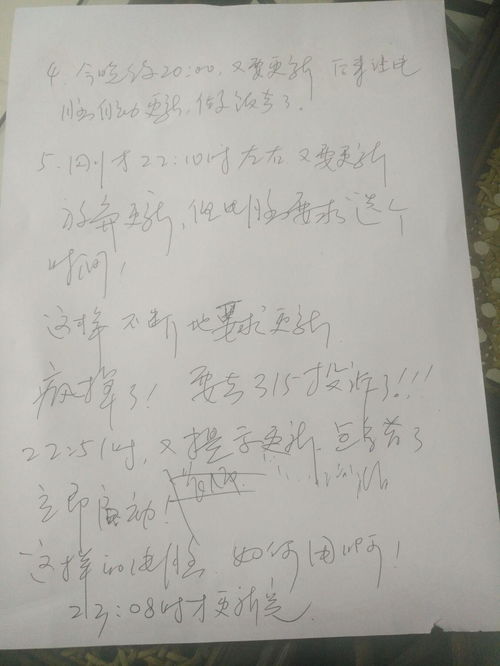 4. 今晚约20:00,又要更新 后来让电
脑自动更新,做饭去了。
5. 刚才22:10时左右 又要更新
放弃更新,但电脑要求选个
时间!
这样不断地要求更新
疯掉了! 要去315投诉了!!!
22:51时,又提示更新 点击了
立即启动!
这样的电脑 如何用啊!
23:08时才更新完